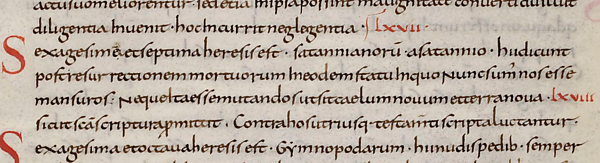 diligentia Inuenit · hoc Incurrit neglegentia · lxvii ·
Sexagesima et septima heresis est · satannianorū · a satannio · hi dicunt
post resurrectionem mortuorum In eodem statu In quo Nunc sum' nos esse
mansuros · Neque Ita esse mutandos ut sit caelum novum et terra nova · lxviii
sicut scā scriptura p̱mittit · Contra hos utriusq· testam̄ti scripta luctantur ·
Sexagesima et octava heresis est · Gymnopodarum · hi nudis pedib· semper